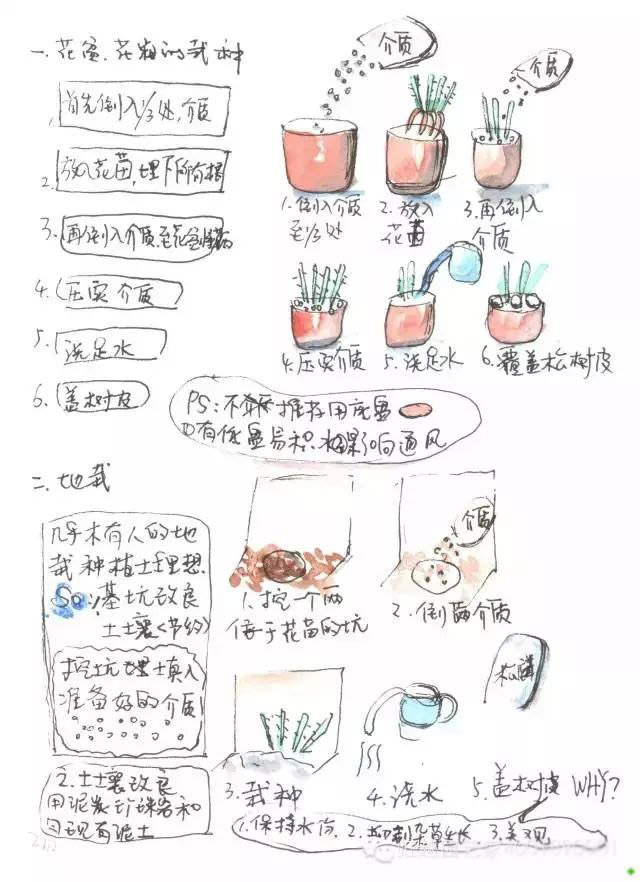 一、花盆、花箱的栽种
1. 首先倒入1/3处介质
2. 放入花苗,埋下所有根
3. 再倒入介质至花盆
4. 压实介质
5. 浇足水
6. 盖树皮
介质
介质
1. 倒入介质
至1/3处
2. 放入
花苗
3. 再倒入
介质
4. 压实介质
5. 浇足水
6. 覆盖松树皮
PS:不推荐用底盘
有底盘易积水影响通风
二、地栽
几乎木有人的地
栽种植土理想
So:基坑改良
土壤<节约>
挖坑埋填入
准备好的介质
2. 土壤改良
用泥炭珍珠岩和
现有泥土
1. 挖一个两
倍于花苗的坑
介质
2. 倒入介质
3. 栽种
4. 浇水
松鳞
5. 盖树皮 WHY?
1. 保持水份 2. 抑制杂草生长 3. 美观